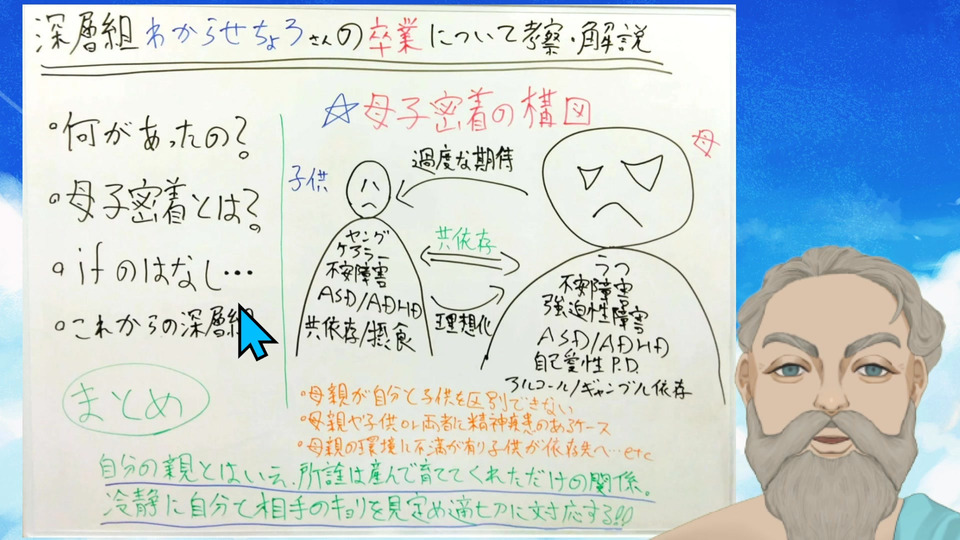 深層組わからせちょろさんの卒業について考察・解説
・何があったの?
・母子密着とは?
・ifのはなし…
・これからの深層組
まとめ
☆母子密着の構図
子供
過度な期待
母
共依存
理想化
ヤング
ケアラー
不安障害
ASD/ADHD
共依存/摂食
うつ
不安障害
強迫性障害
ASD/ADHD
自己愛性P.D.
アルコール/ギャンブル依存
・母親が自分と子供を区別できない
・母親や子供or両者に精神疾患のあるケース
・母親の環境に不満が有り子供が依存先へ…etc
自分の親とはいえ、所詮は産んで育ててくれただけの関係。
冷静に自分と相手のキョリを見定め適切に対応する!!